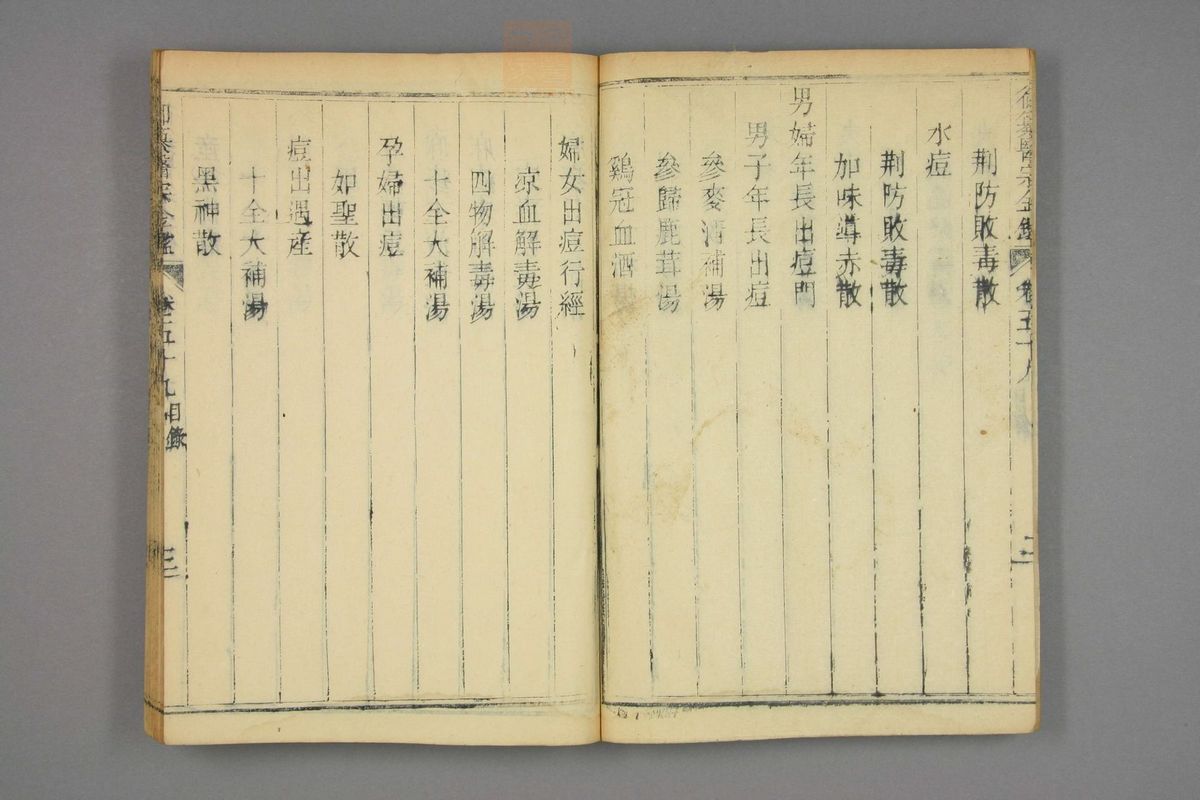 荆防敗毒散
水痘
荆防敗毒散
加味導赤散
男婦年長出痘門
男子年長出痘
參麥淸補湯
參歸鹿茸湯
鷄冠血酒
婦女出痘行經
凉血解毒湯
四物解毒湯
十全大補湯
孕婦出痘
如聖散
痘出遇産
十全大補湯
黑神散
卷五十九 目錄 三